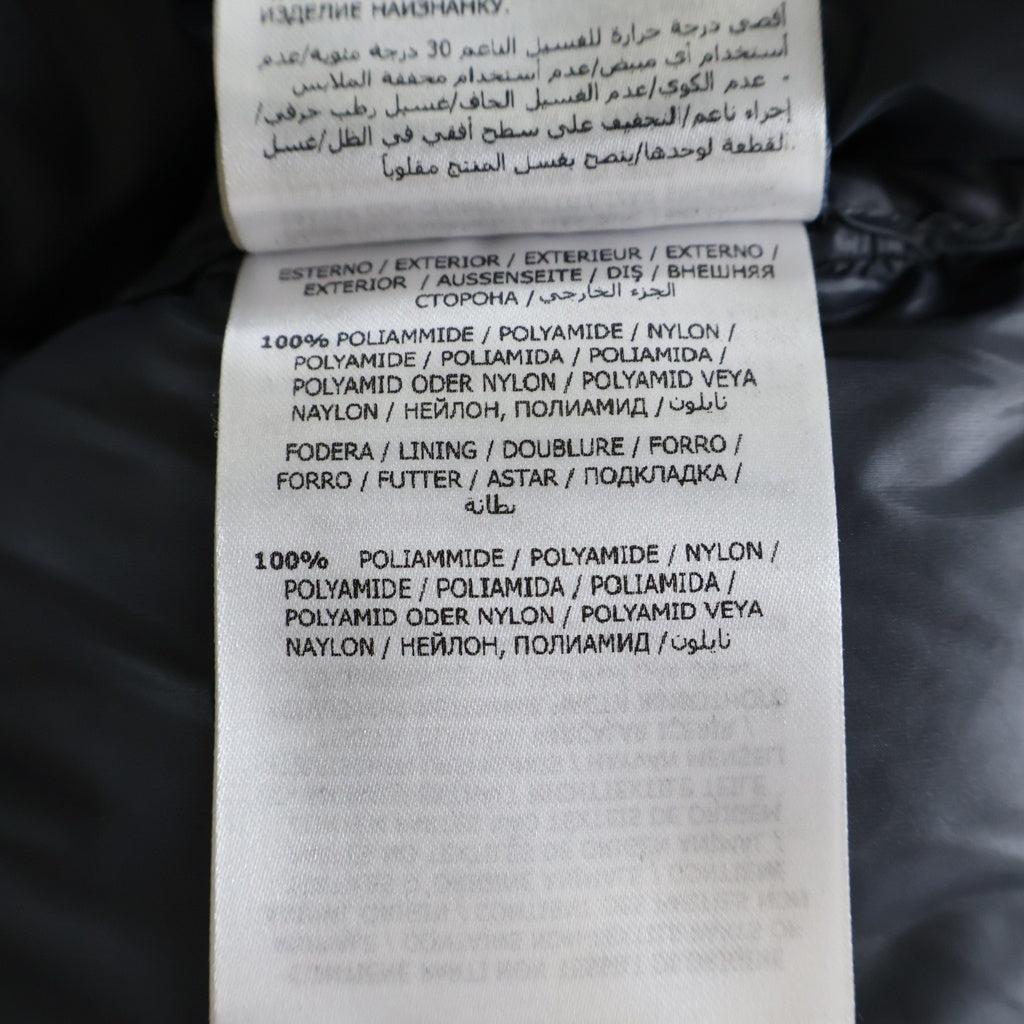 ИЗДЕЛИЕ НАИЗНАНКУ.
أقصى درجة حرارة للغسيل الناعم 30 درجة مئوية/عدم
أستخدام أي مبيض/عدم أستخدام مجففة الملابس
- عدم الكوي/عدم الغسيل الجاف/غسيل رطب حرفي/
إجراء ناعم/التجفيف على سطح أفقي في الظل/غسل
القطعة لوحدها/ينصح بغسل المنتج مقلوباً
ESTERNO / EXTERIOR / EXTERIEUR / EXTERNO /
EXTERIOR / AUSSENSEITE / DIŞ / ВНЕШНЯЯ
СТОРОНА / الجزء الخارجي
100% POLIAMMIDE / POLYAMIDE / NYLON /
POLYAMIDE / POLIAMIDA / POLIAMIDA /
POLYAMID ODER NYLON / POLYAMID VEYA
NAYLON / НЕЙЛОН, ПОЛИАМИД / نايلون
FODERA / LINING / DOUBLURE / FORRO /
FORRO / FUTTER / ASTAR / ПОДКЛАДКА /
بطانة
100% POLIAMMIDE / POLYAMIDE / NYLON /
POLYAMIDE / POLIAMIDA / POLIAMIDA /
POLYAMID ODER NYLON / POLYAMID VEYA
NAYLON / НЕЙЛОН, ПОЛИАМИД / نايلون